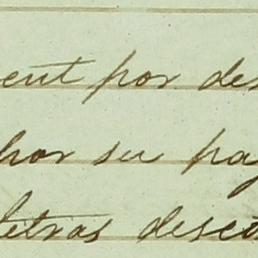 cent por des
por su pag
letras desco